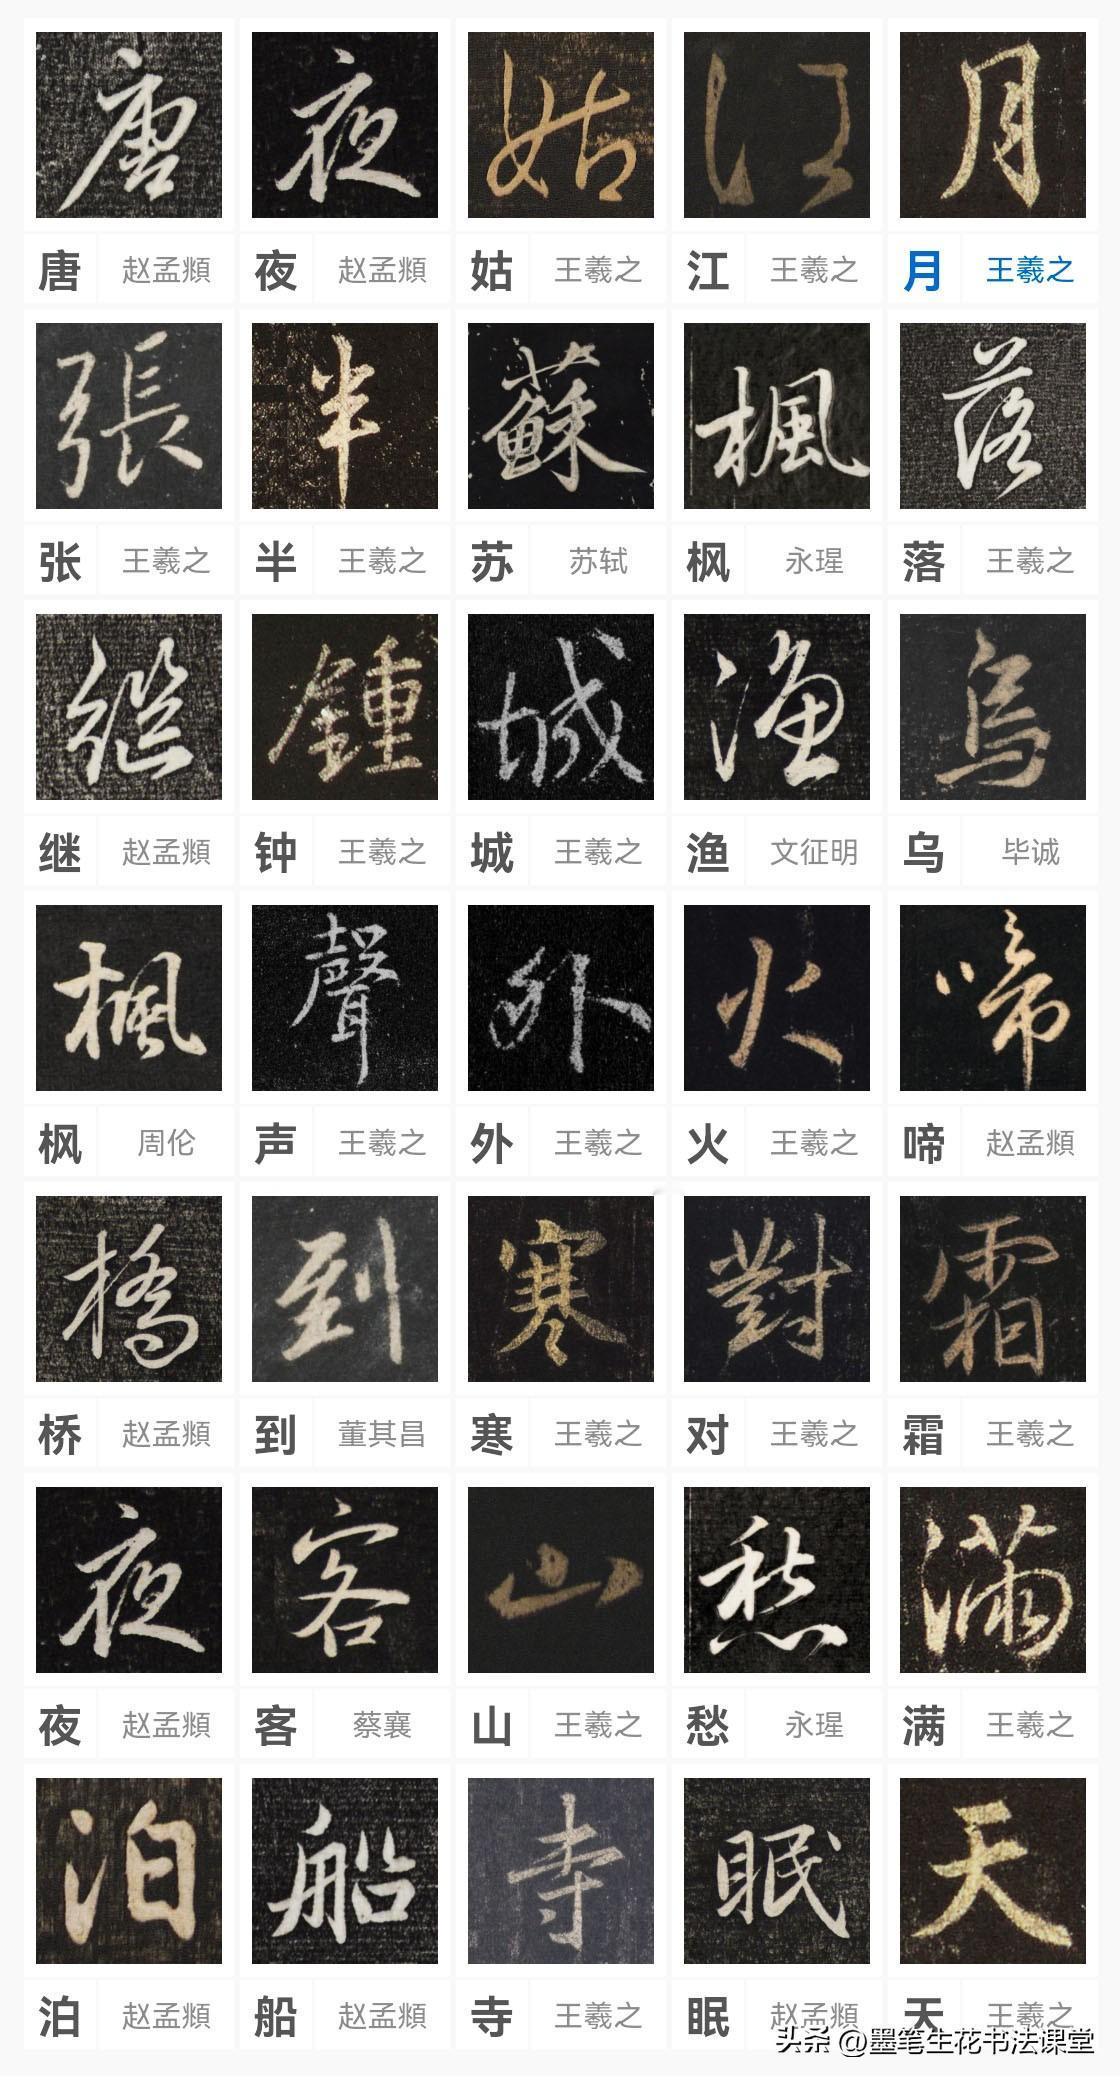 唐 夜 姑 江 月
唐 赵孟頫 夜 赵孟頫 姑 王羲之 江 王羲之 月 王羲之
張 半 蘇 楓 落
张 王羲之 半 王羲之 苏 苏轼 枫 永瑆 落 王羲之
继 鍾 城 渔 烏
继 赵孟頫 钟 王羲之 城 王羲之 渔 文征明 乌 毕诚
楓 聲 外 火 啼
枫 周伦 声 王羲之 外 王羲之 火 王羲之 啼 赵孟頫
橋 到 寒 對 霜
桥 赵孟頫 到 董其昌 寒 王羲之 对 王羲之 霜 王羲之
夜 客 山 愁 滿
夜 赵孟頫 客 蔡襄 山 王羲之 愁 永瑆 满 王羲之
泊 船 寺 眠 天
泊 赵孟頫 船 赵孟頫 寺 王羲之 眠 赵孟頫 天 王羲之
头条 @墨笔生花书法课堂